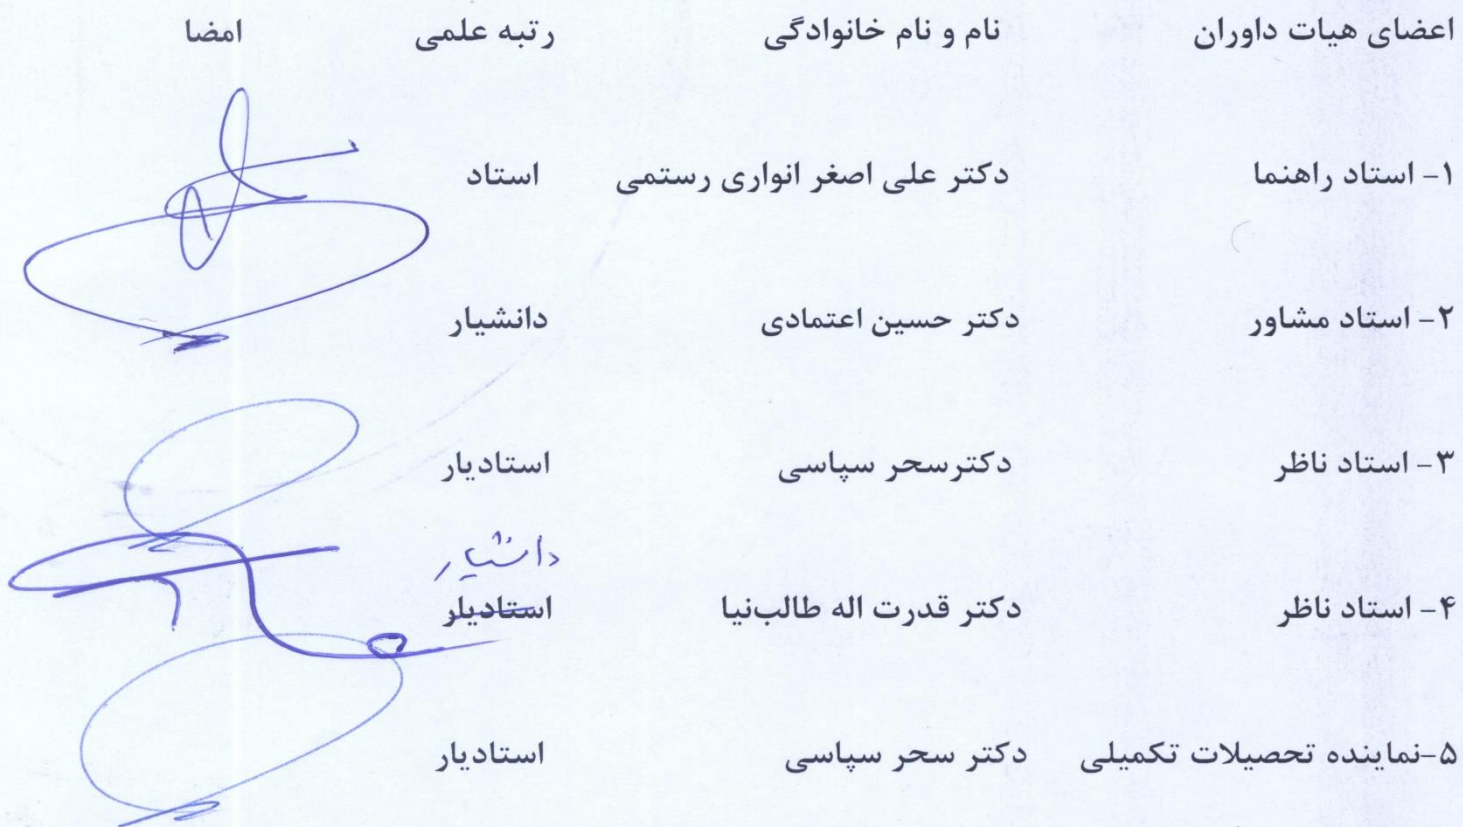 اعضای هیات داوران نام و نام خانوادگی رتبه علمی امضا
۱- استاد راهنما دکتر علی اصغر انواری رستمی استاد
۲- استاد مشاور دکتر حسین اعتمادی دانشیار
۳- استاد ناظر دکترسحر سپاسی استادیار
دانشیار
۴- استاد ناظر دکتر قدرت اله طالب‌نیا استادیار
۵-نماینده تحصیلات تکمیلی دکتر سحر سپاسی استادیار